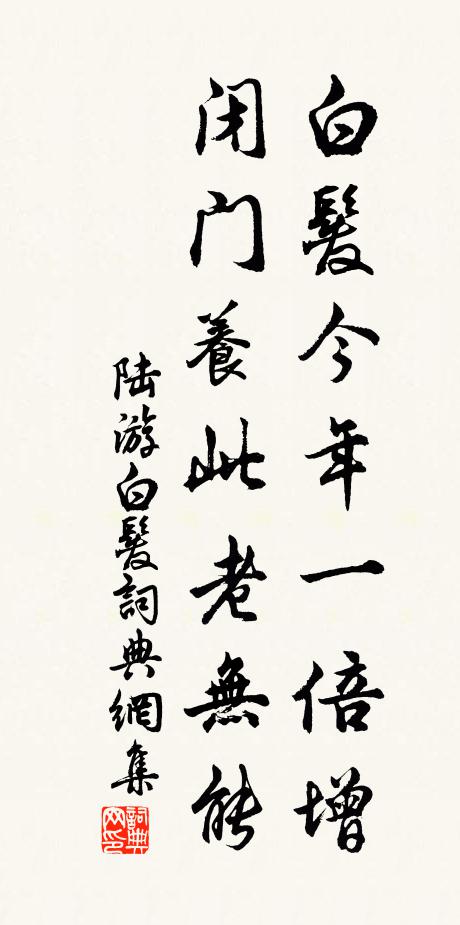 白髮今年一倍增
闭門養此老無能
陆游白髮詞典網集
詞典网印